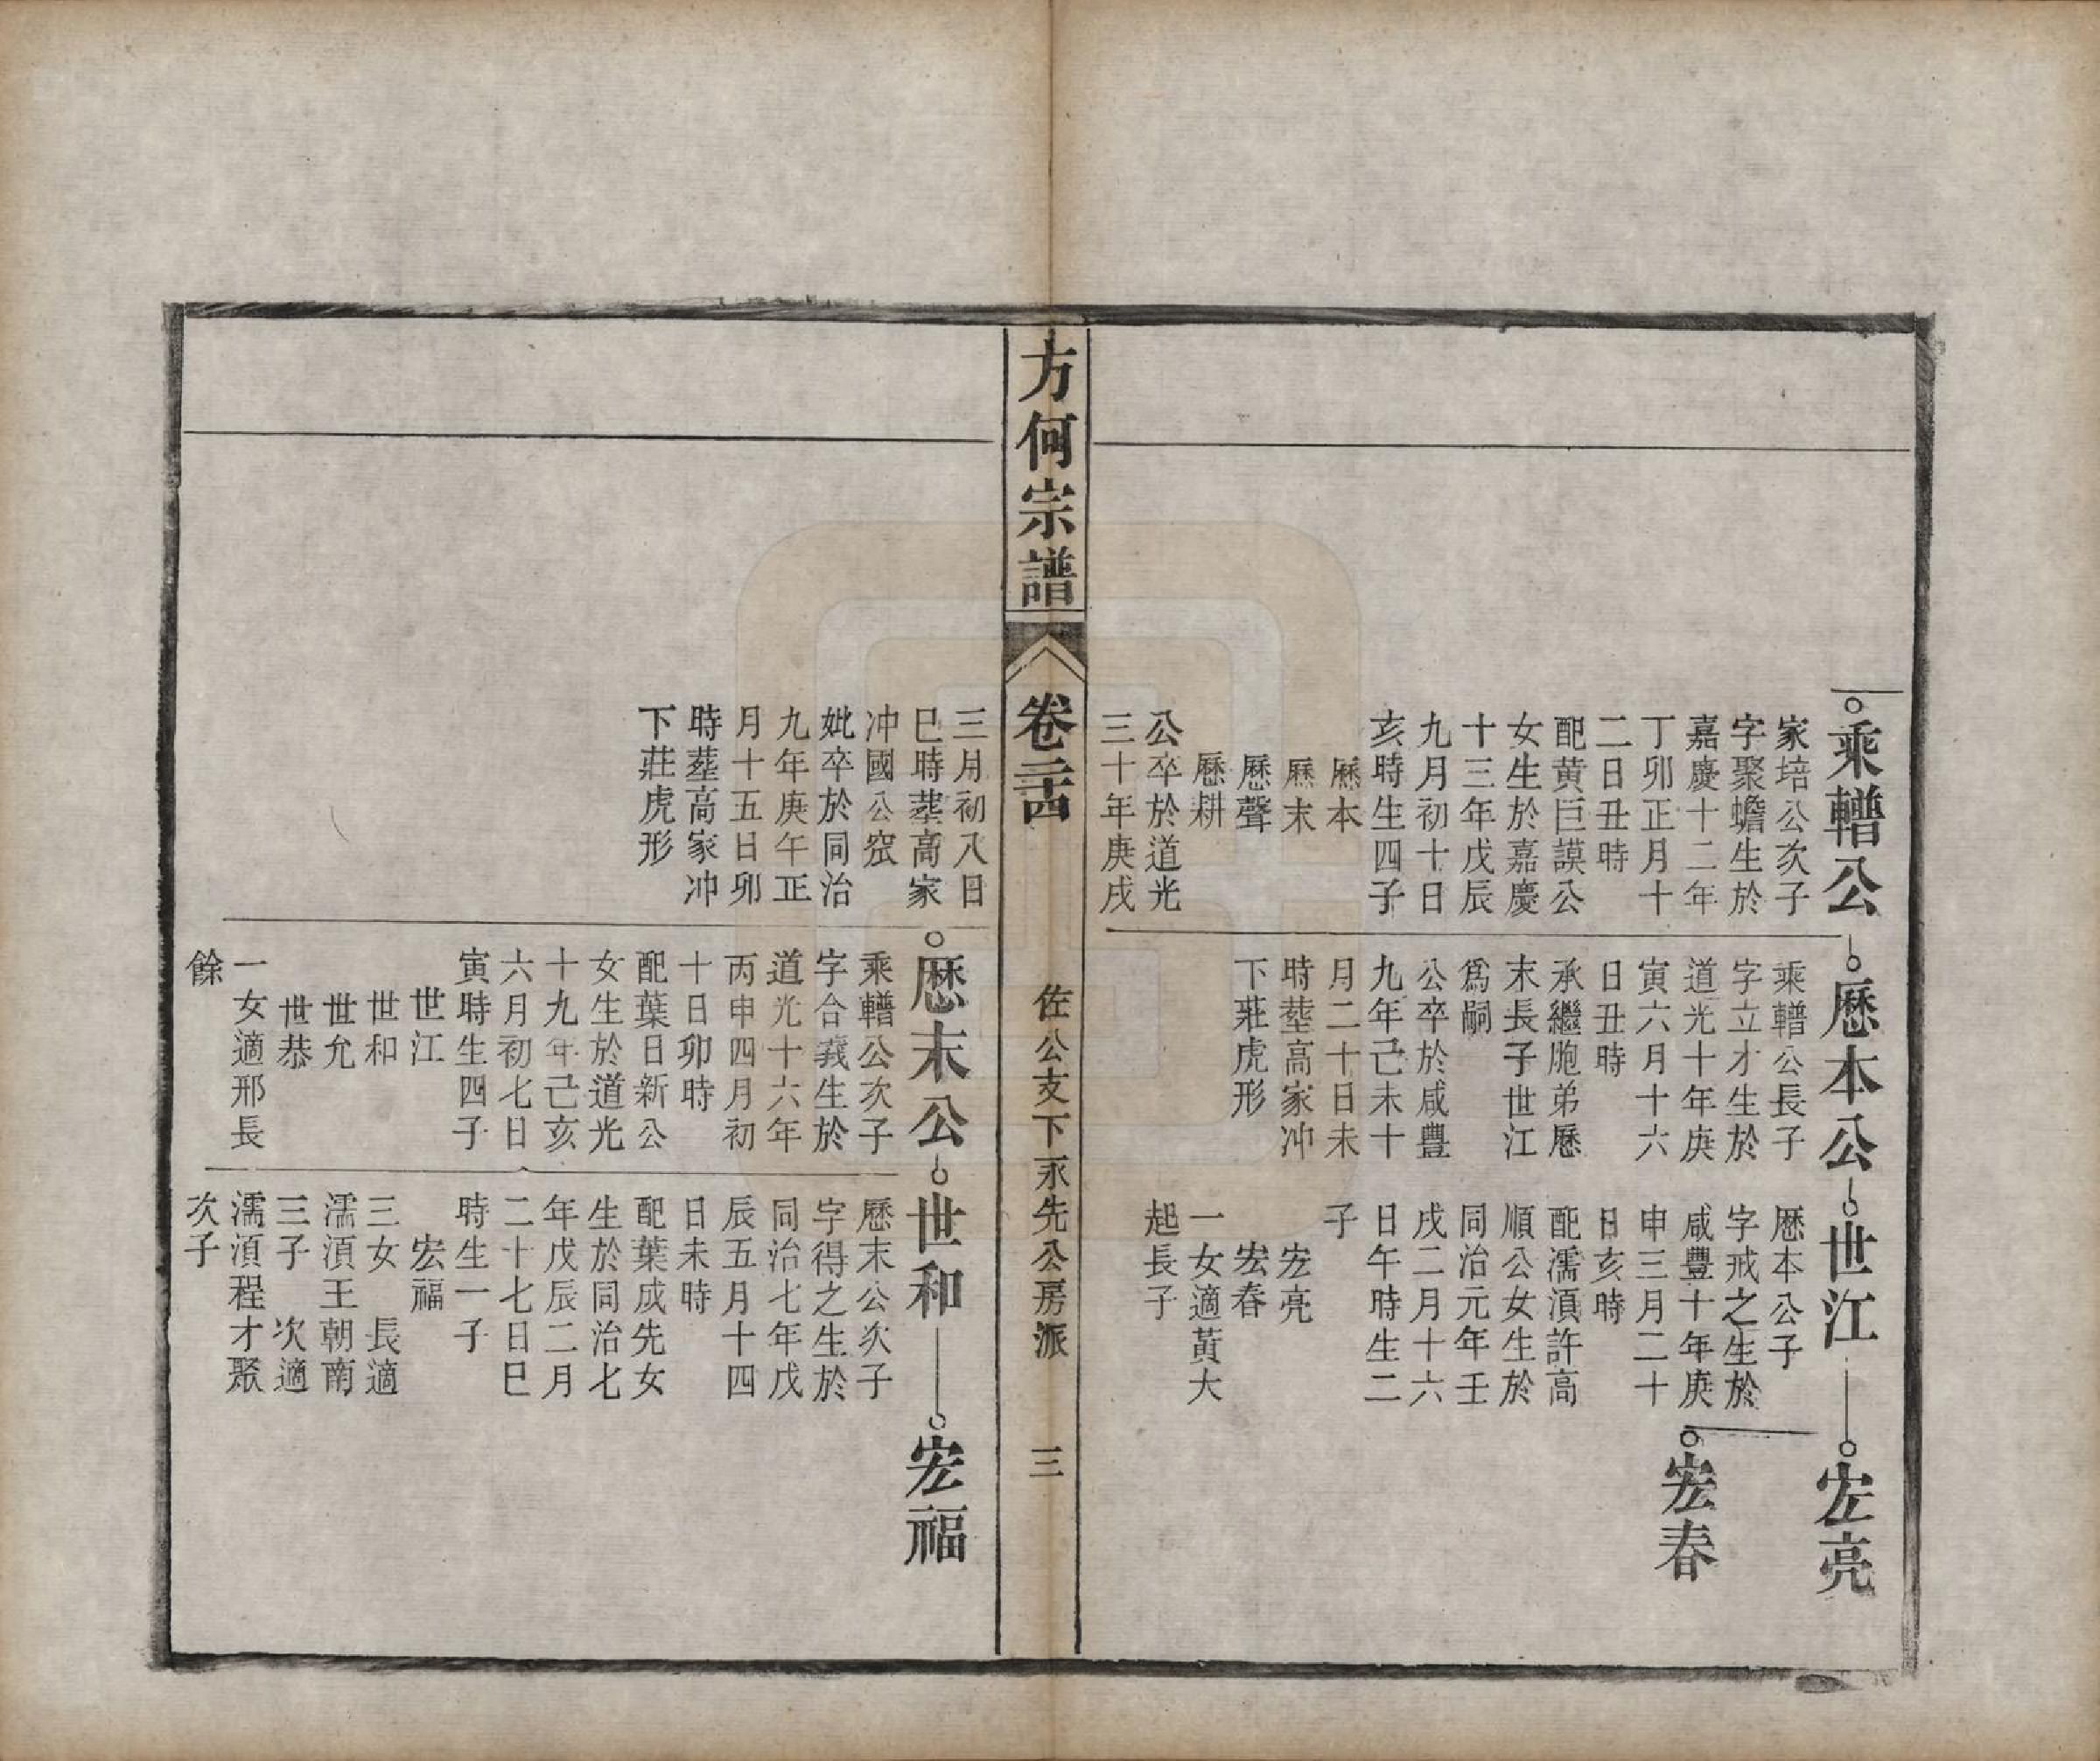 乘轖公
家培公次子
字聚蟾生於
嘉慶十二年
丁卯正月十
二日丑時
配黃巨謨公
女生於嘉慶
十三年戊辰
九月初十日
亥時生四子
歷本
歷末
歷聲
歷耕
公卒於道光
三十年庚戌
歷本公
乘轖公長子
字立才生於
道光十年庚
寅六月十六
日丑時
承繼胞弟歷
末長子世江
爲嗣
公卒於咸豐
九年己未十
月二十日未
時塟高家冲
下莊虎形
世江
歷本公子
字戒之生於
咸豐十年庚
申三月二十
日亥時
配濡湏許高
順公女生於
同治元年壬
戌二月十六
日午時生二
子
宏亮
宏春
一女適黃大
起長子
宏亮
宏春
方何宗譜
卷二十四
佐公支下永先公房派
三
三月初八日
巳時塟高家
冲國公窊
妣卒於同治
九年庚午正
月十五日卯
時塟高家冲
下莊虎形
歷末公
乘轖公次子
字合義生於
道光十六年
丙申四月初
十日卯時
配葉日新公
女生於道光
十九年己亥
六月初七日
寅時生四子
世江
世和
世允
世恭
一女適邢長
餘
世和
歷末公次子
字得之生於
同治七年戊
辰五月十四
日未時
配葉成先女
生於同治七
年戊辰二月
二十七日巳
時生一子
宏福
三女 長適
濡湏王朝南
三子 次適
濡湏程才聚
次子
宏福